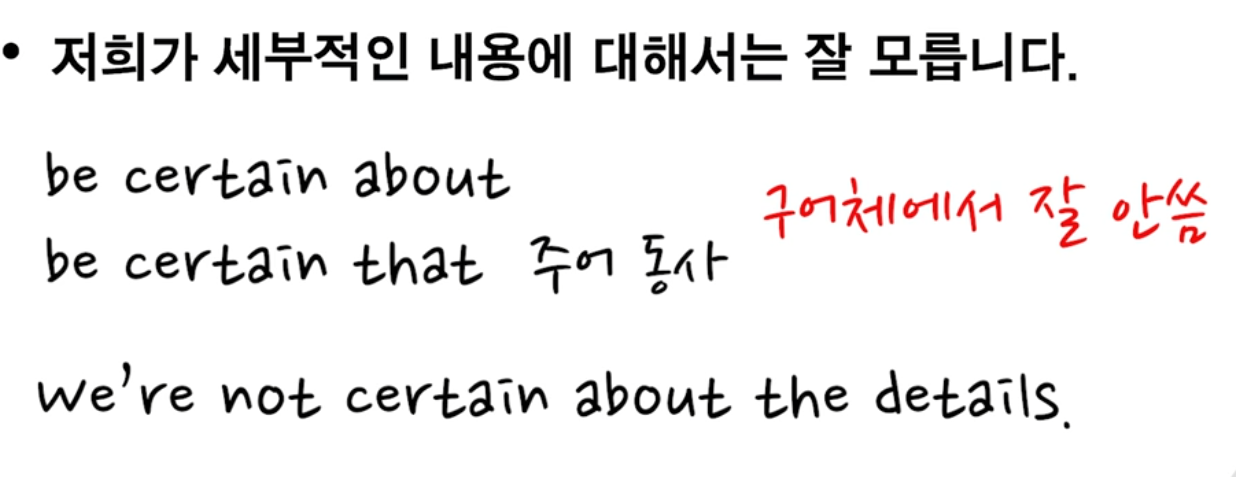 • 저희가 세부적인 내용에 대해서는 잘 모릅니다.
be certain about
구어체에서 잘 안씀
be certain that 주어 동사
we're not certain about the details.